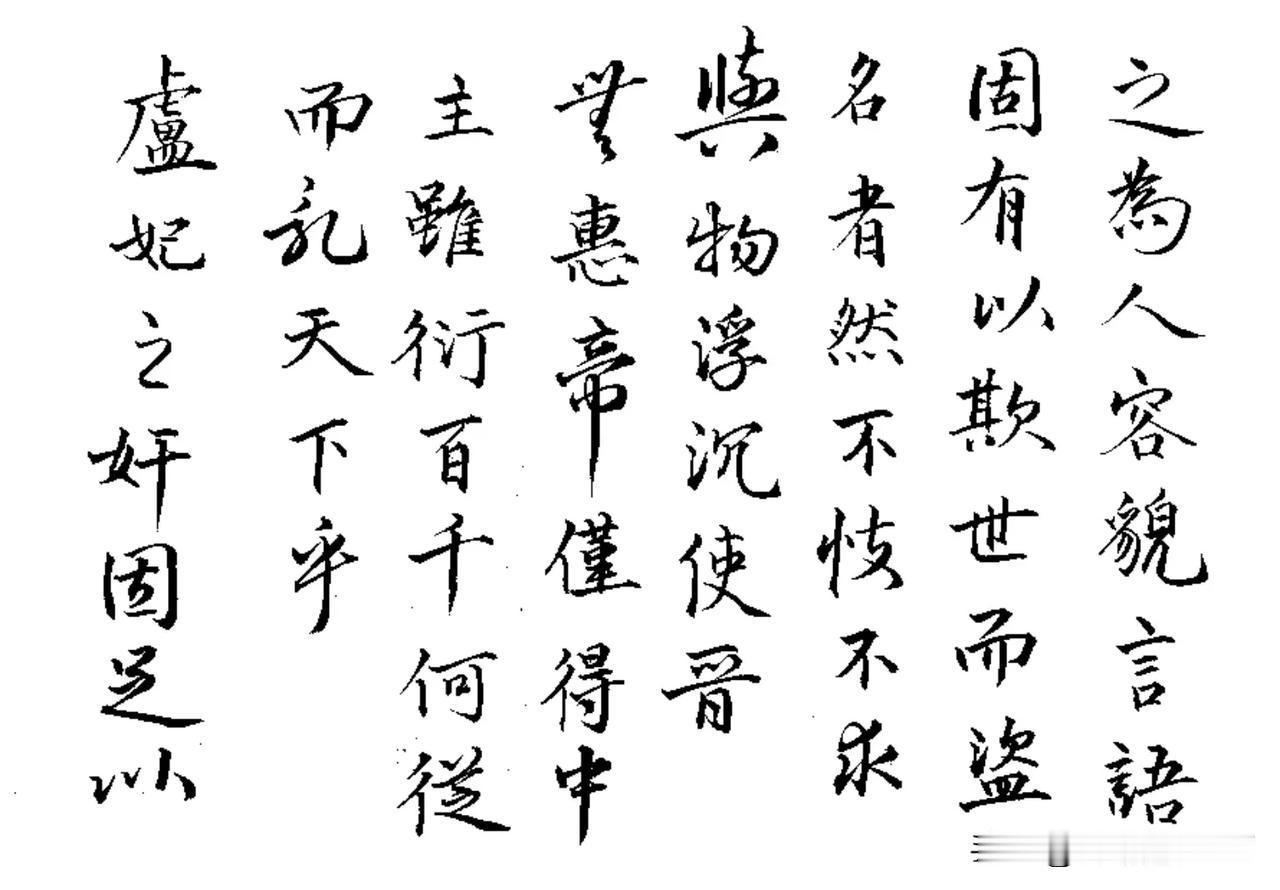 之為人容貌言語
固有以欺世而盜
名者然不忮不求
與物浮沉使晉
無惠帝僅得中
主雖衍百千何從
而乱天下乎
盧妃之奸固足以